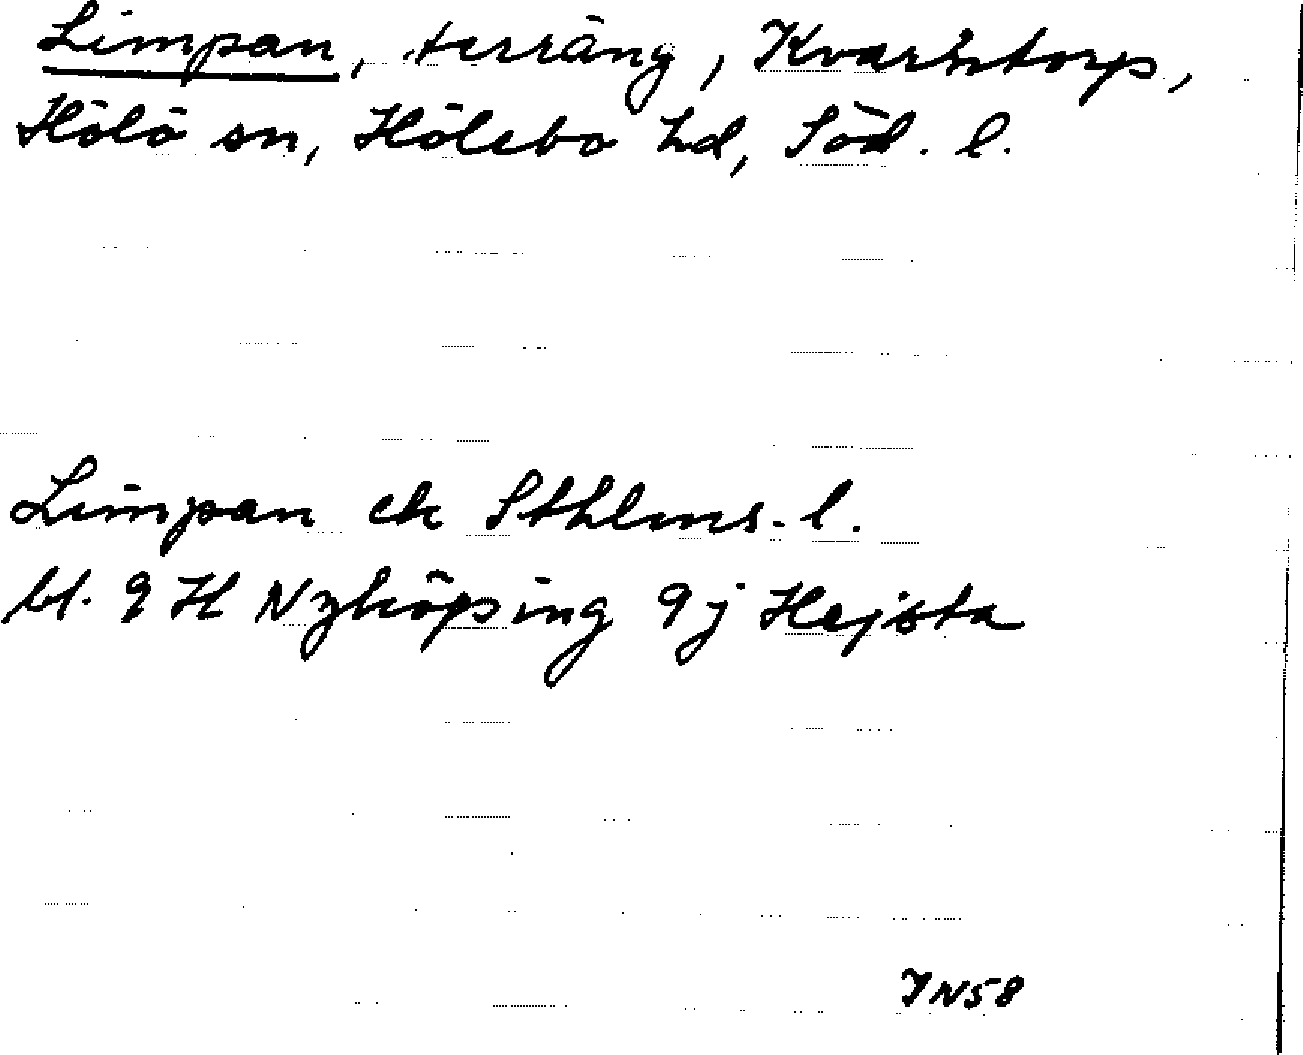 Limpan, terräng, Kvarntorp,
Hölö sn, Hölebo hd, Söd. l.
Limpan ek Sthlms. l.
bl. 9 H Nyköping 9j Hejsta
JN58